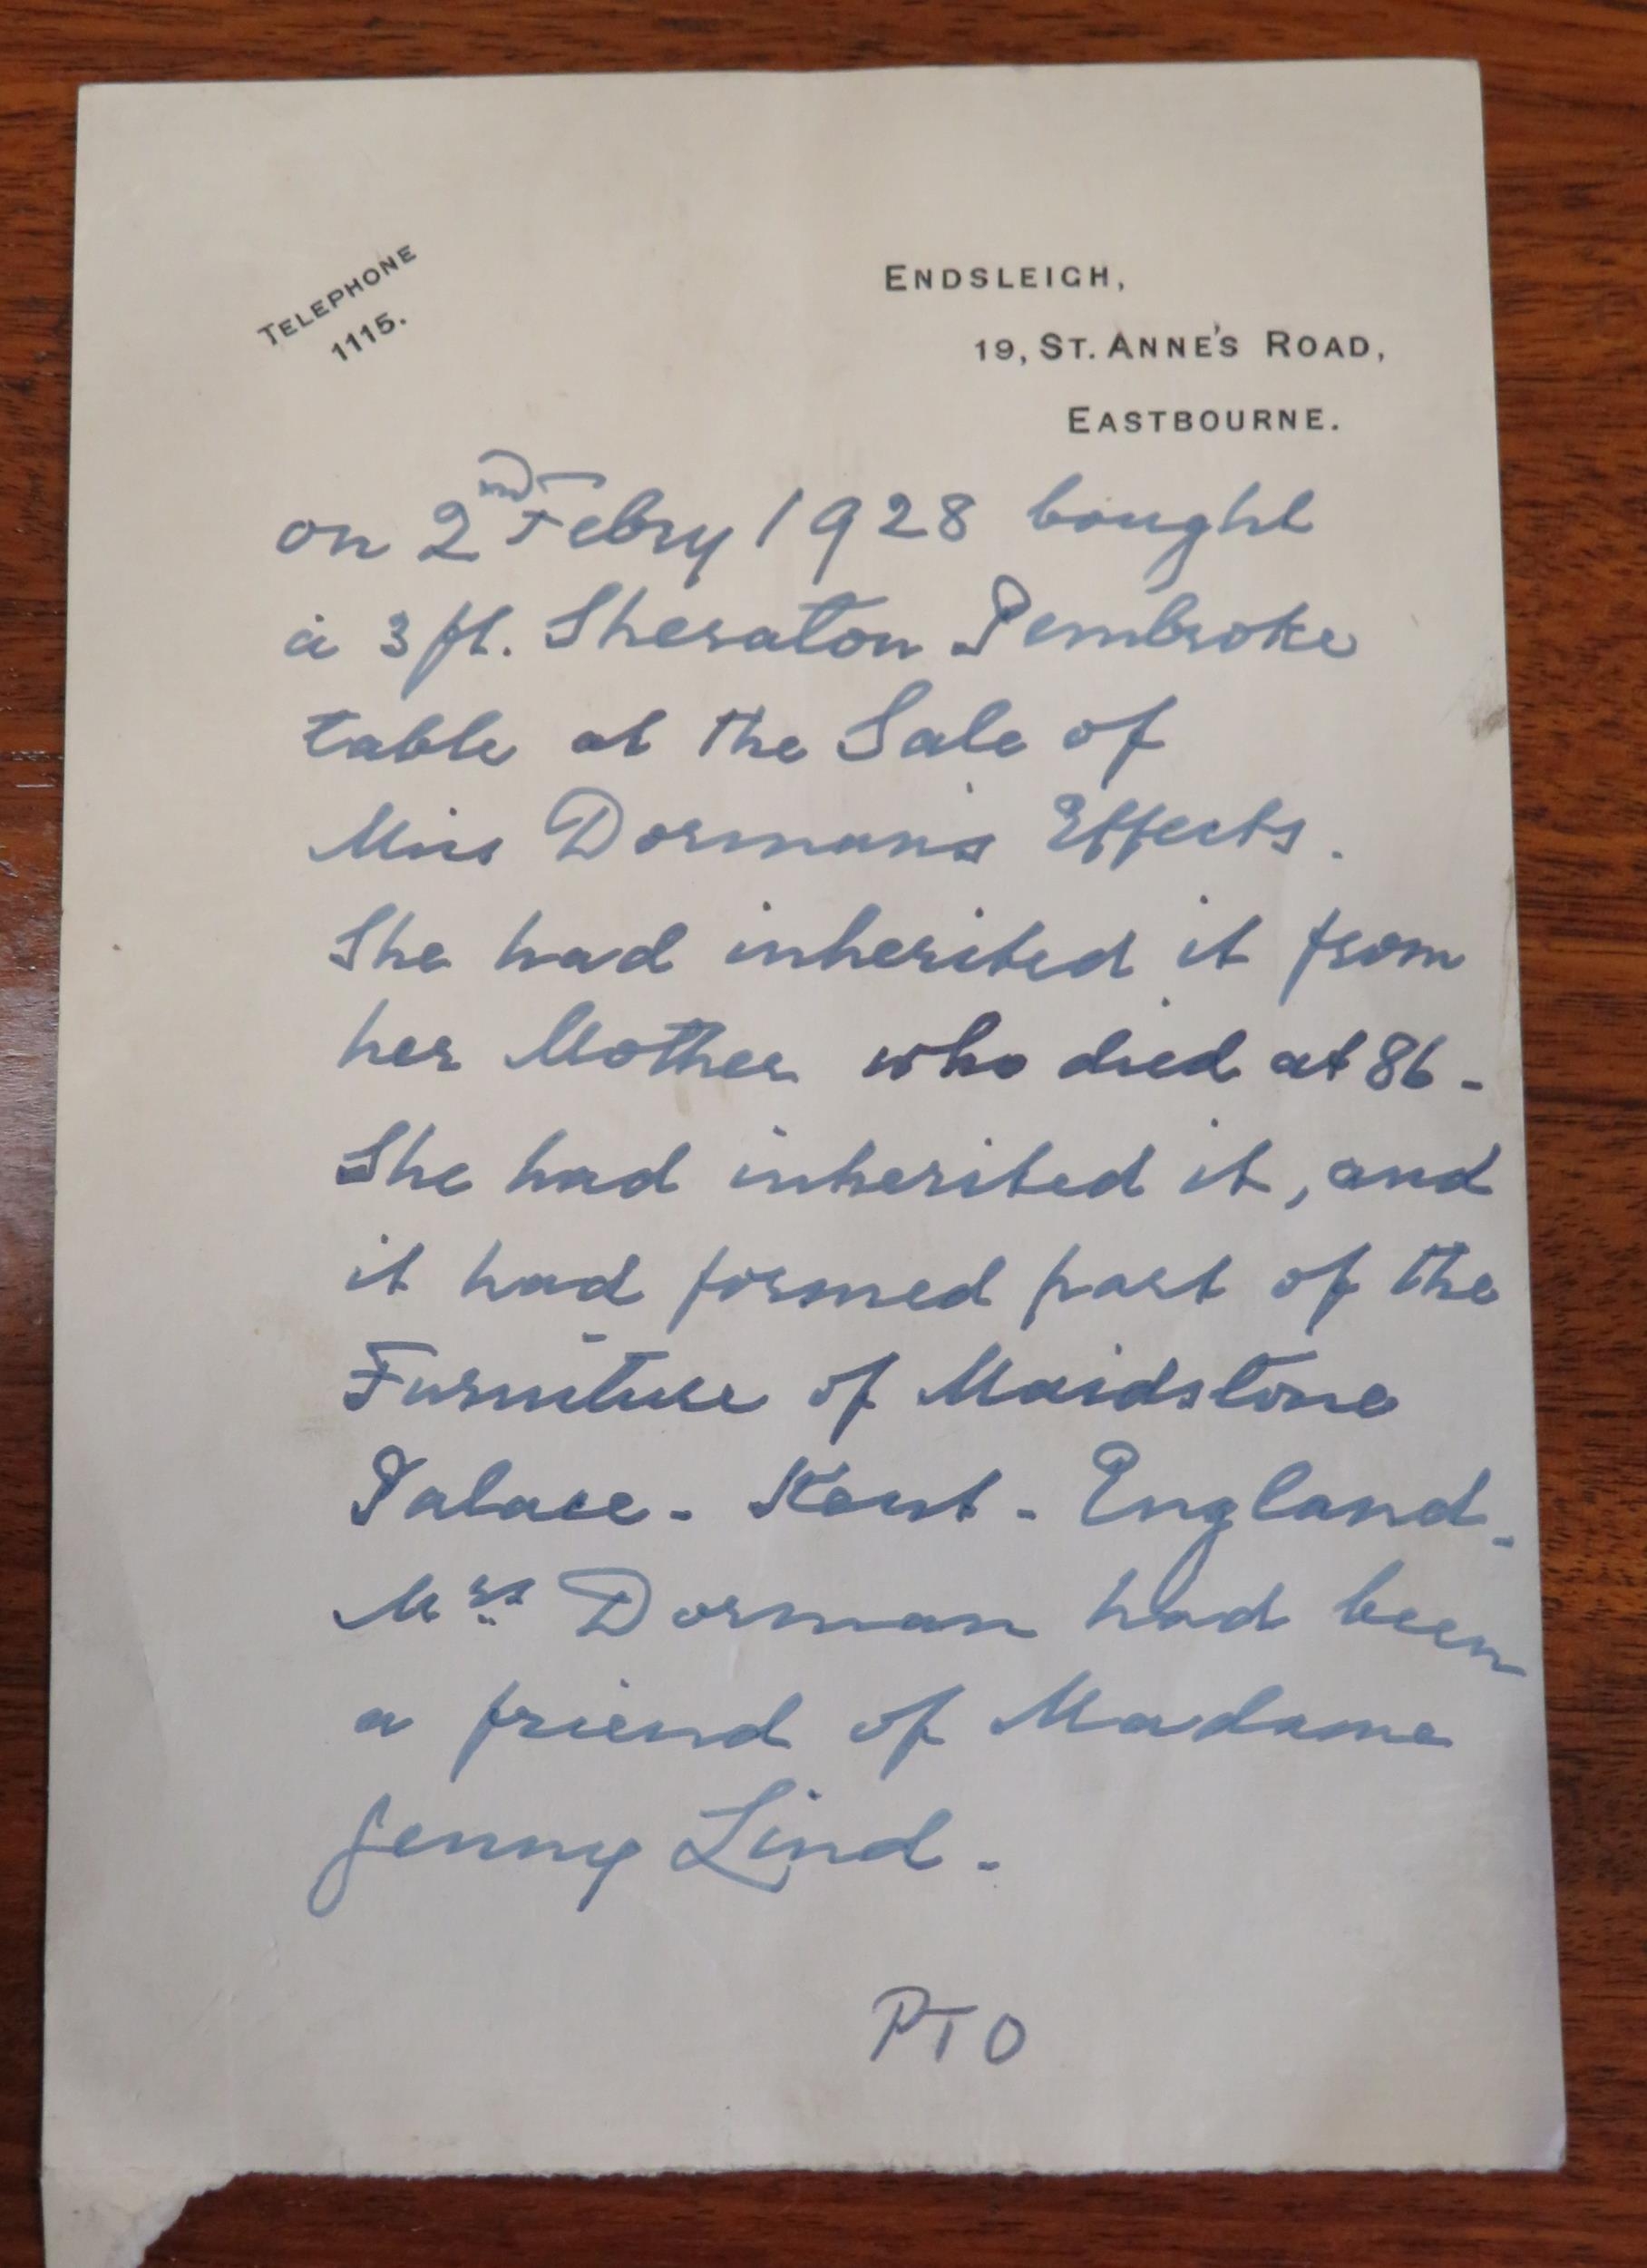 TELEPHONE
1115.
ENDSLEIGH,
19, ST. ANNE'S ROAD,
EASTBOURNE.
on 2nd Febry 1928 bought
a 3 ft. Sheraton Pembroke
table at the Sale of
Miss Dorman's Effects.
She had inherited it from
her Mother who died at 86 -
She had inherited it, and
it had formed part of the
Furniture of Maidstone
Palace - Kent - England.
Mrs Dorman had been
a friend of Madame
Jenny Lind -
PTO